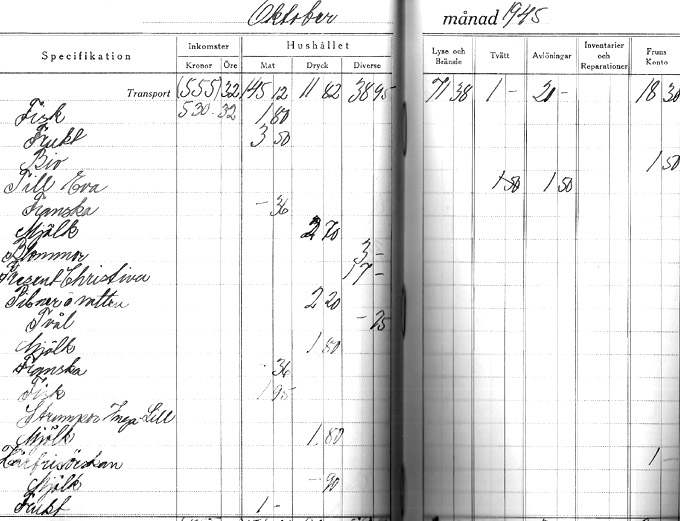 Oktober månad 1945
Specifikation Inkomster Hushållet Lyse och Bränsle Tvätt Avlöningar Inventarier och Reparationer Fruns Konto
Kronor Öre Mat Dryck Diverse
Transport (555) 32 145 12 11 82 38 95 71 38 1 - 20 - 18 30
Fisk 530. 32 1 80
Frukt 3 50
Bio 1 50
Till Eva 1 50 1 50
Franska - 36
Mjölk 2 70
Blommor 3 -
Present Christina 17 -
Pilsner o vatten 2 20
Tvål - 75
Mjölk 1 80
Franska - 36
Fisk 1 95
Strumpor Inga Lill
Mjölk 1.80
Hårfrisörskan 1 -
Mjölk - 90
Frukt 1 -